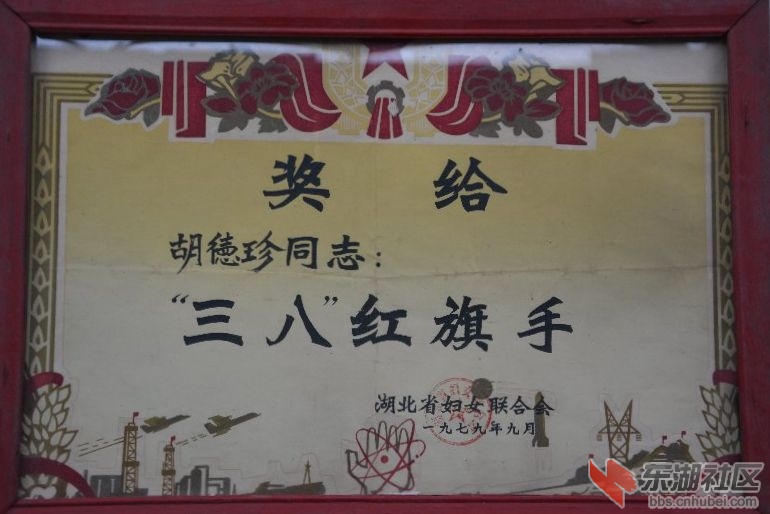 奖 给
胡德珍同志：
“三八”红旗手
湖北省妇女联合会
一九七九年九月
东湖社区
bbs.cnhubei.com